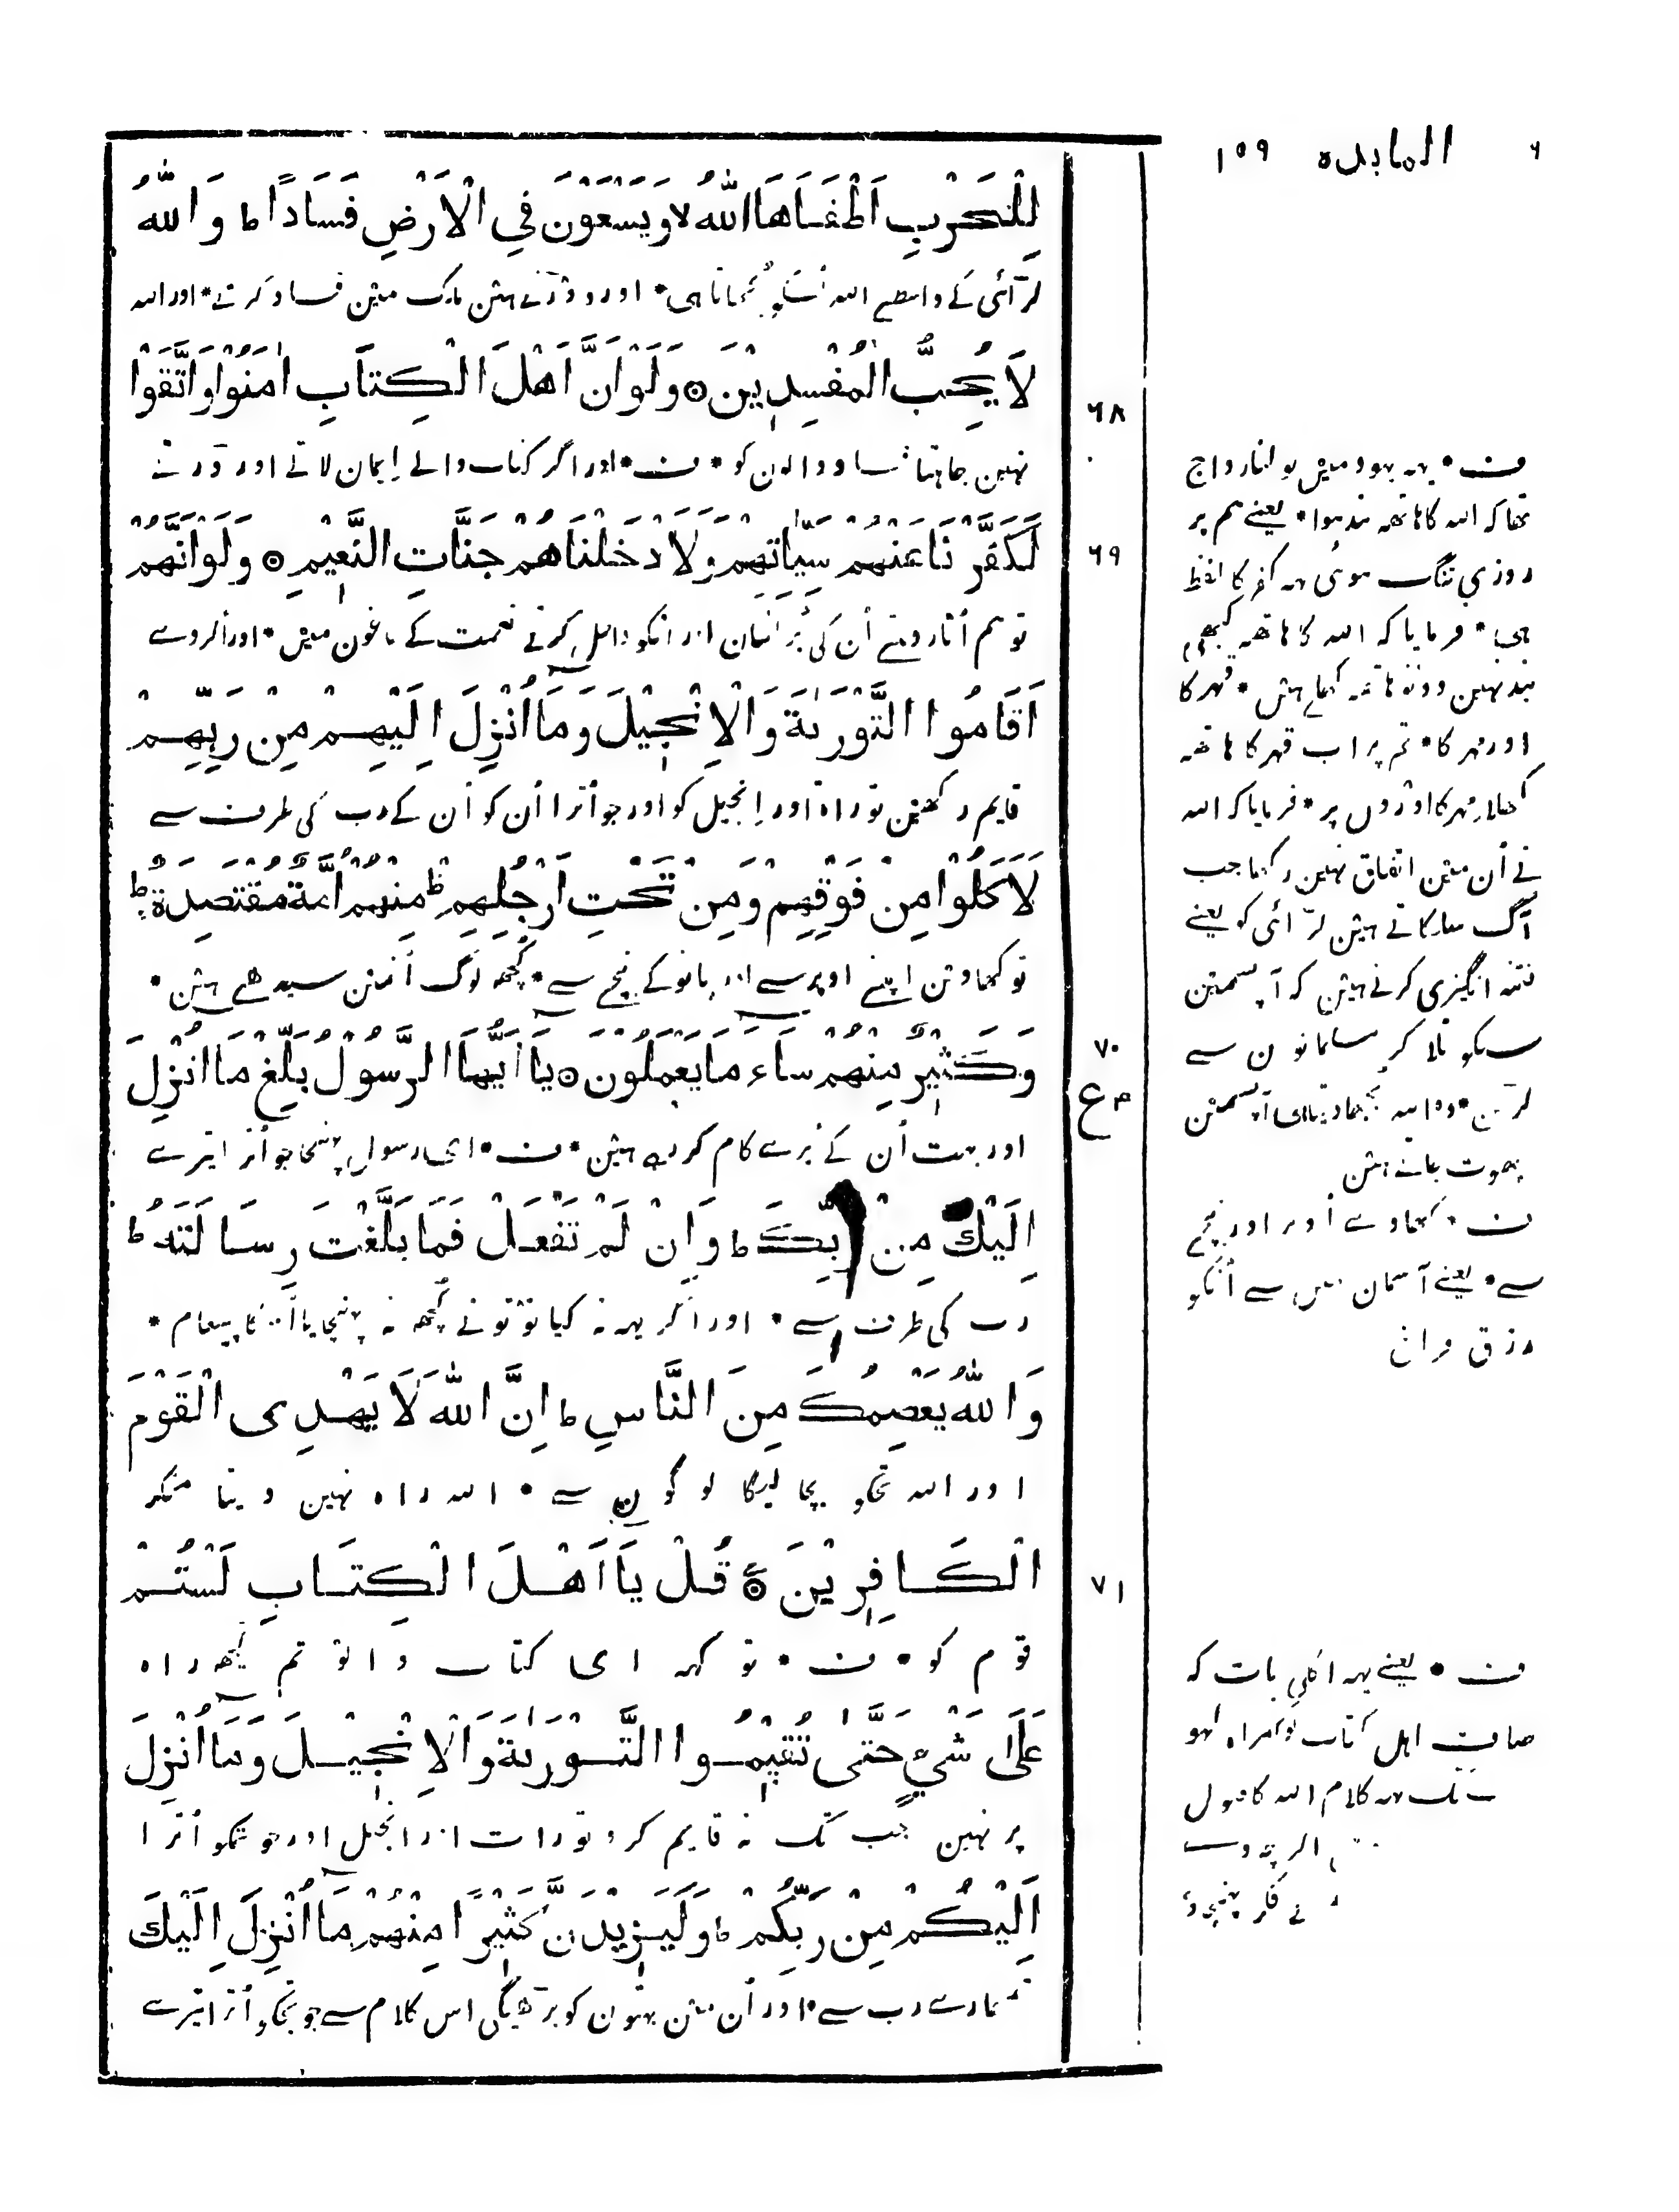 ٦ المایده ١٥٩
لِلْحَرْبِ اَطْفَاَهَا اللّٰهُ لا وَيَسْعَوْنَ فِي الْاَرْضِ فَسَادًا ط وَ اللّٰهُ
لڑائی کے واسطے اللہ اُسکو بُجھاتا ہی * اور دوڑتے ہیٖن ملک میٖن فساد کرتے * اور اللہ
لَا يُحِبُّ الْمُفْسِدِيْنَ ۞ وَلَوْ اَنَّ اَهْلَ الْكِتَابِ اٰمَنُوْا وَ اتَّقَوْا
٦٨
نہین چاہتا فساد والون کو * ف * اور اگر کتاب والے اِیمان لاتے اور ڈرتے
لَكَفَّرْنَا عَنْهُمْ سَيِّاٰتِهِمْ وَلَاَدْخَلْنَاهُمْ جَنَّاتِ النَّعِيْمِ ۞ وَلَوْ اَنَّهُمْ
٦٩
تو ہم اُتار دیتے اُن کی بُرائیان اور انکو داخل کرتے نعمت کے باغون میٖں * اور اگر وے
اَقَامُوا التَّوْرٰىةَ وَالْاِنْجِيْلَ وَمَا اُنْزِلَ اِلَيْهِمْ مِنْ رَبِّهِمْ
قایم رکھیٖن توراۃ اور اِنجیل کو اور جو اُترا اُن کو اُن کے رب کی طرف سے
لَاَكَلُوْا مِنْ فَوْقِهِمْ وَمِنْ تَحْتِ اَرْجُلِهِمْ ط مِنْهُمْ اُمَّةٌ مُقْتَصِدَةٌ ط
تو کھاویٖن اپنے اوپر سے اور پانو کے نیٖچے سے * کُچھ لوگ اُنمیٖن سیدھے ہیٖن *
وَكَثِيْرٌ مِنْهُمْ سَآءَ مَا يَعْمَلُوْنَ ۞ يَا اَيُّهَا الرَّسُوْلُ بَلِّغْ مَا اُنْزِلَ
٧٠
ع
اور بہت اُن کے بُرے کام کر رہے ہیٖن * ف * ای رسول پہنچا جو اُترا تیرے
اِلَيْكَ مِنْ رَبِّكَ ط وَاِنْ لَمْ تَفْعَلْ فَمَا بَلَّغْتَ رِسَالَتَهُ ط
رب کی طرف سے * اور اگر یہہ نہ کیا تو تو نے کُچھ نہ پہنچایا اُسکا پیغام *
وَ اللّٰهُ يَعْصِمُكَ مِنَ النَّاسِ ط اِنَّ اللّٰهَ لَا يَهْدِى الْقَوْمَ
اور اللہ تجکو بچا لیگا لوگون سے * اللہ راہ نہین دیتا منکر
الْكَافِرِيْنَ ۞ قُلْ يَا اَهْلَ الْكِتَابِ لَسْتُمْ
٧١
قوم کو * ف * تو کہہ ای کتاب والو تم کچھ راہ
عَلٰى شَيْءٍ حَتّٰى تُقِيْمُوا التَّوْرٰىةَ وَالْاِنْجِيْلَ وَمَا اُنْزِلَ
پر نہین جب تک نہ قایم کرو تورات اور انجیل اور جو تمکو اُترا
اِلَيْكُمْ مِنْ رَبِّكُمْ ط وَلَيَزِيْدَنَّ كَثِيْرًا مِنْهُمْ مَا اُنْزِلَ اِلَيْكَ
تمہارے رب سے * اور اُن میٖن بہتون کو بڑھیگی اس کلام سے جو تجکو اُترا تیرے
ف * یہہ یہود میٖں بولنا رواج
تھا کہ اللہ کا ہاتھہ بند ہوا * یعنے ہم پر
روزی تنگ ہوئی یہہ کفر کا لفظ
ہی * فرمایا کہ اللہ کا ہاتھہ کبھی
بند نہین دونو ہاتھہ کھلے ہیٖں * قہر کا
اور مہر کا * تم پر اب قہر کا ہاتھہ
کھلا مہر کا اوٗروں پر * فرمایا کہ اللہ
نے اُن میٖن اتفاق نہین رکھا جب
آگ سلگاتے ہیٖن لڑائی کو یعنے
فتنہ انگیزی کرتے ہیٖں کہ آپسمیٖن
سبکو ملا کر مسلمانون سے
لڑیٖن * وہ اللہ بجھا دیتا ہی آپسمیٖن
پھوٹ جاتے ہیٖن
ف * کھاوے اُوپر اور نیٖچے
سے * یعنے آسمان زمیٖں سے اُنکو
رزق فراخ
ف * یعنے یہہ اگلی بات کہ
صاف اہل کتاب گمراہ ہو
کلام اللہ کا قبول
فکر